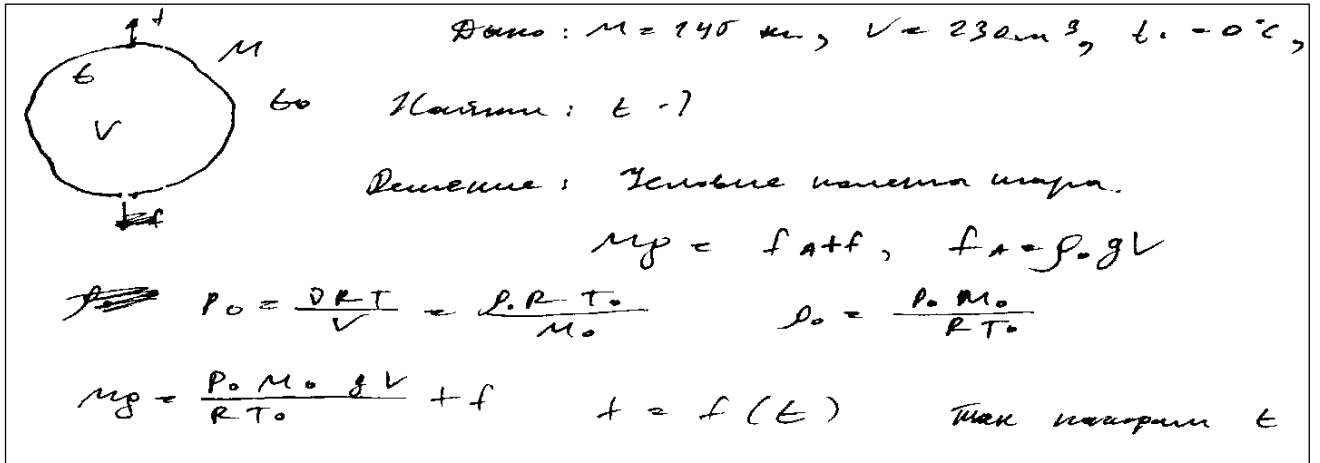 f
t M
V t₀
f
Дано: M = 145 кг, V = 230 м³, t₀ = 0°C,
Найти: t - ?
Решение: Условие полета шара.
Mg = f_A + f, f_A = ρ₀gV
P₀ = νRT/V = ρ₀RT₀/M₀ ρ₀ = P₀M₀/RT₀
Mg = P₀M₀gV/RT₀ + f f = f(t) Так находим t